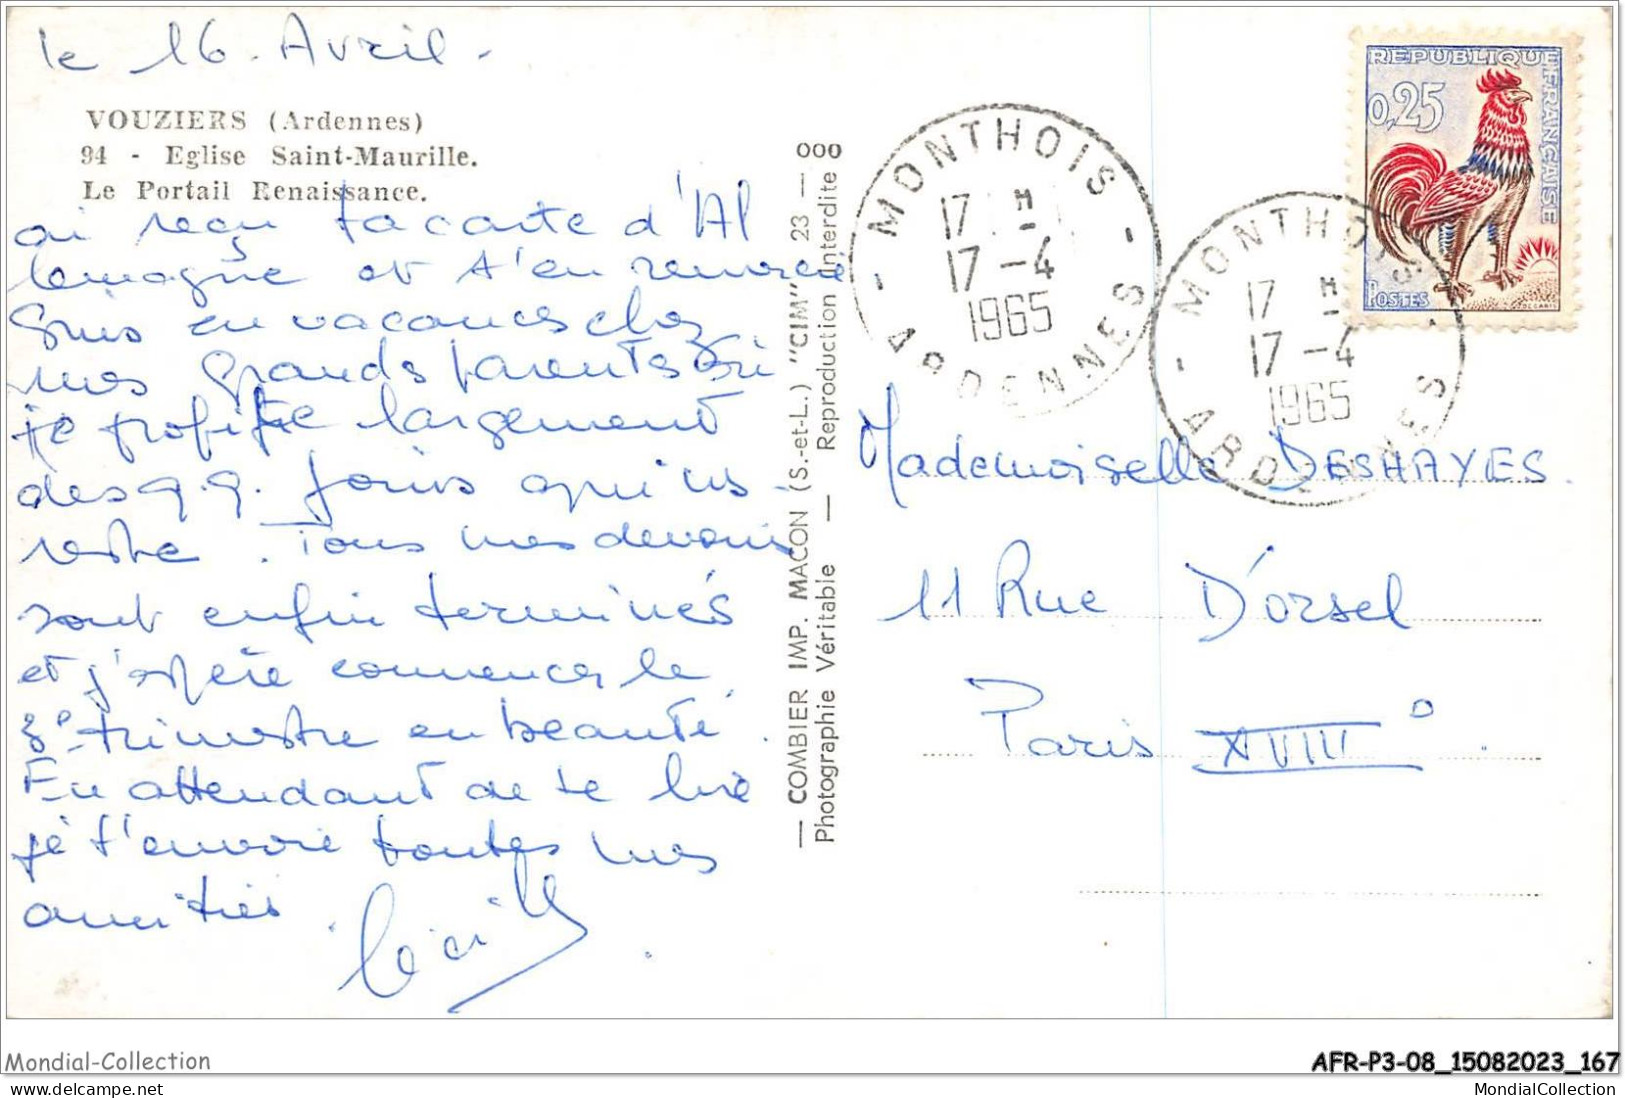 le 16 Avril -
VOUZIERS (Ardennes)
94 - Eglise Saint-Maurille.
Le Portail Renaissance.
ai reçu ta carte d'Al
lemagne et t'en remercie.
Suis en vacances chez
mes grands parents
je profite largement
des q.q. jours qu'
reste. Tous mes devoirs
sont enfin terminés
et j'espère commencer le
3e trimestre en beauté.
En attendant de te lire
je t'envoie toutes mes
amitiés.
Cécile
— COMBIER IMP. MACON (S.-et-L.) "CIM" 23 — 000
Photographie Véritable — Reproduction Interdite
MONTHOIS
17 H
17 - 4
1965
ARDENNES
MONTHOIS
17 H
17 - 4
1965
ARDENNES
REPUBLIQUE FRANÇAISE
0,25
POSTES
Mademoiselle DESHAYES.
11 Rue D'orsel
Paris XVIII°
Mondial-Collection
AFR-P3-08_15082023_167
Delcampe.net
MondialCollection